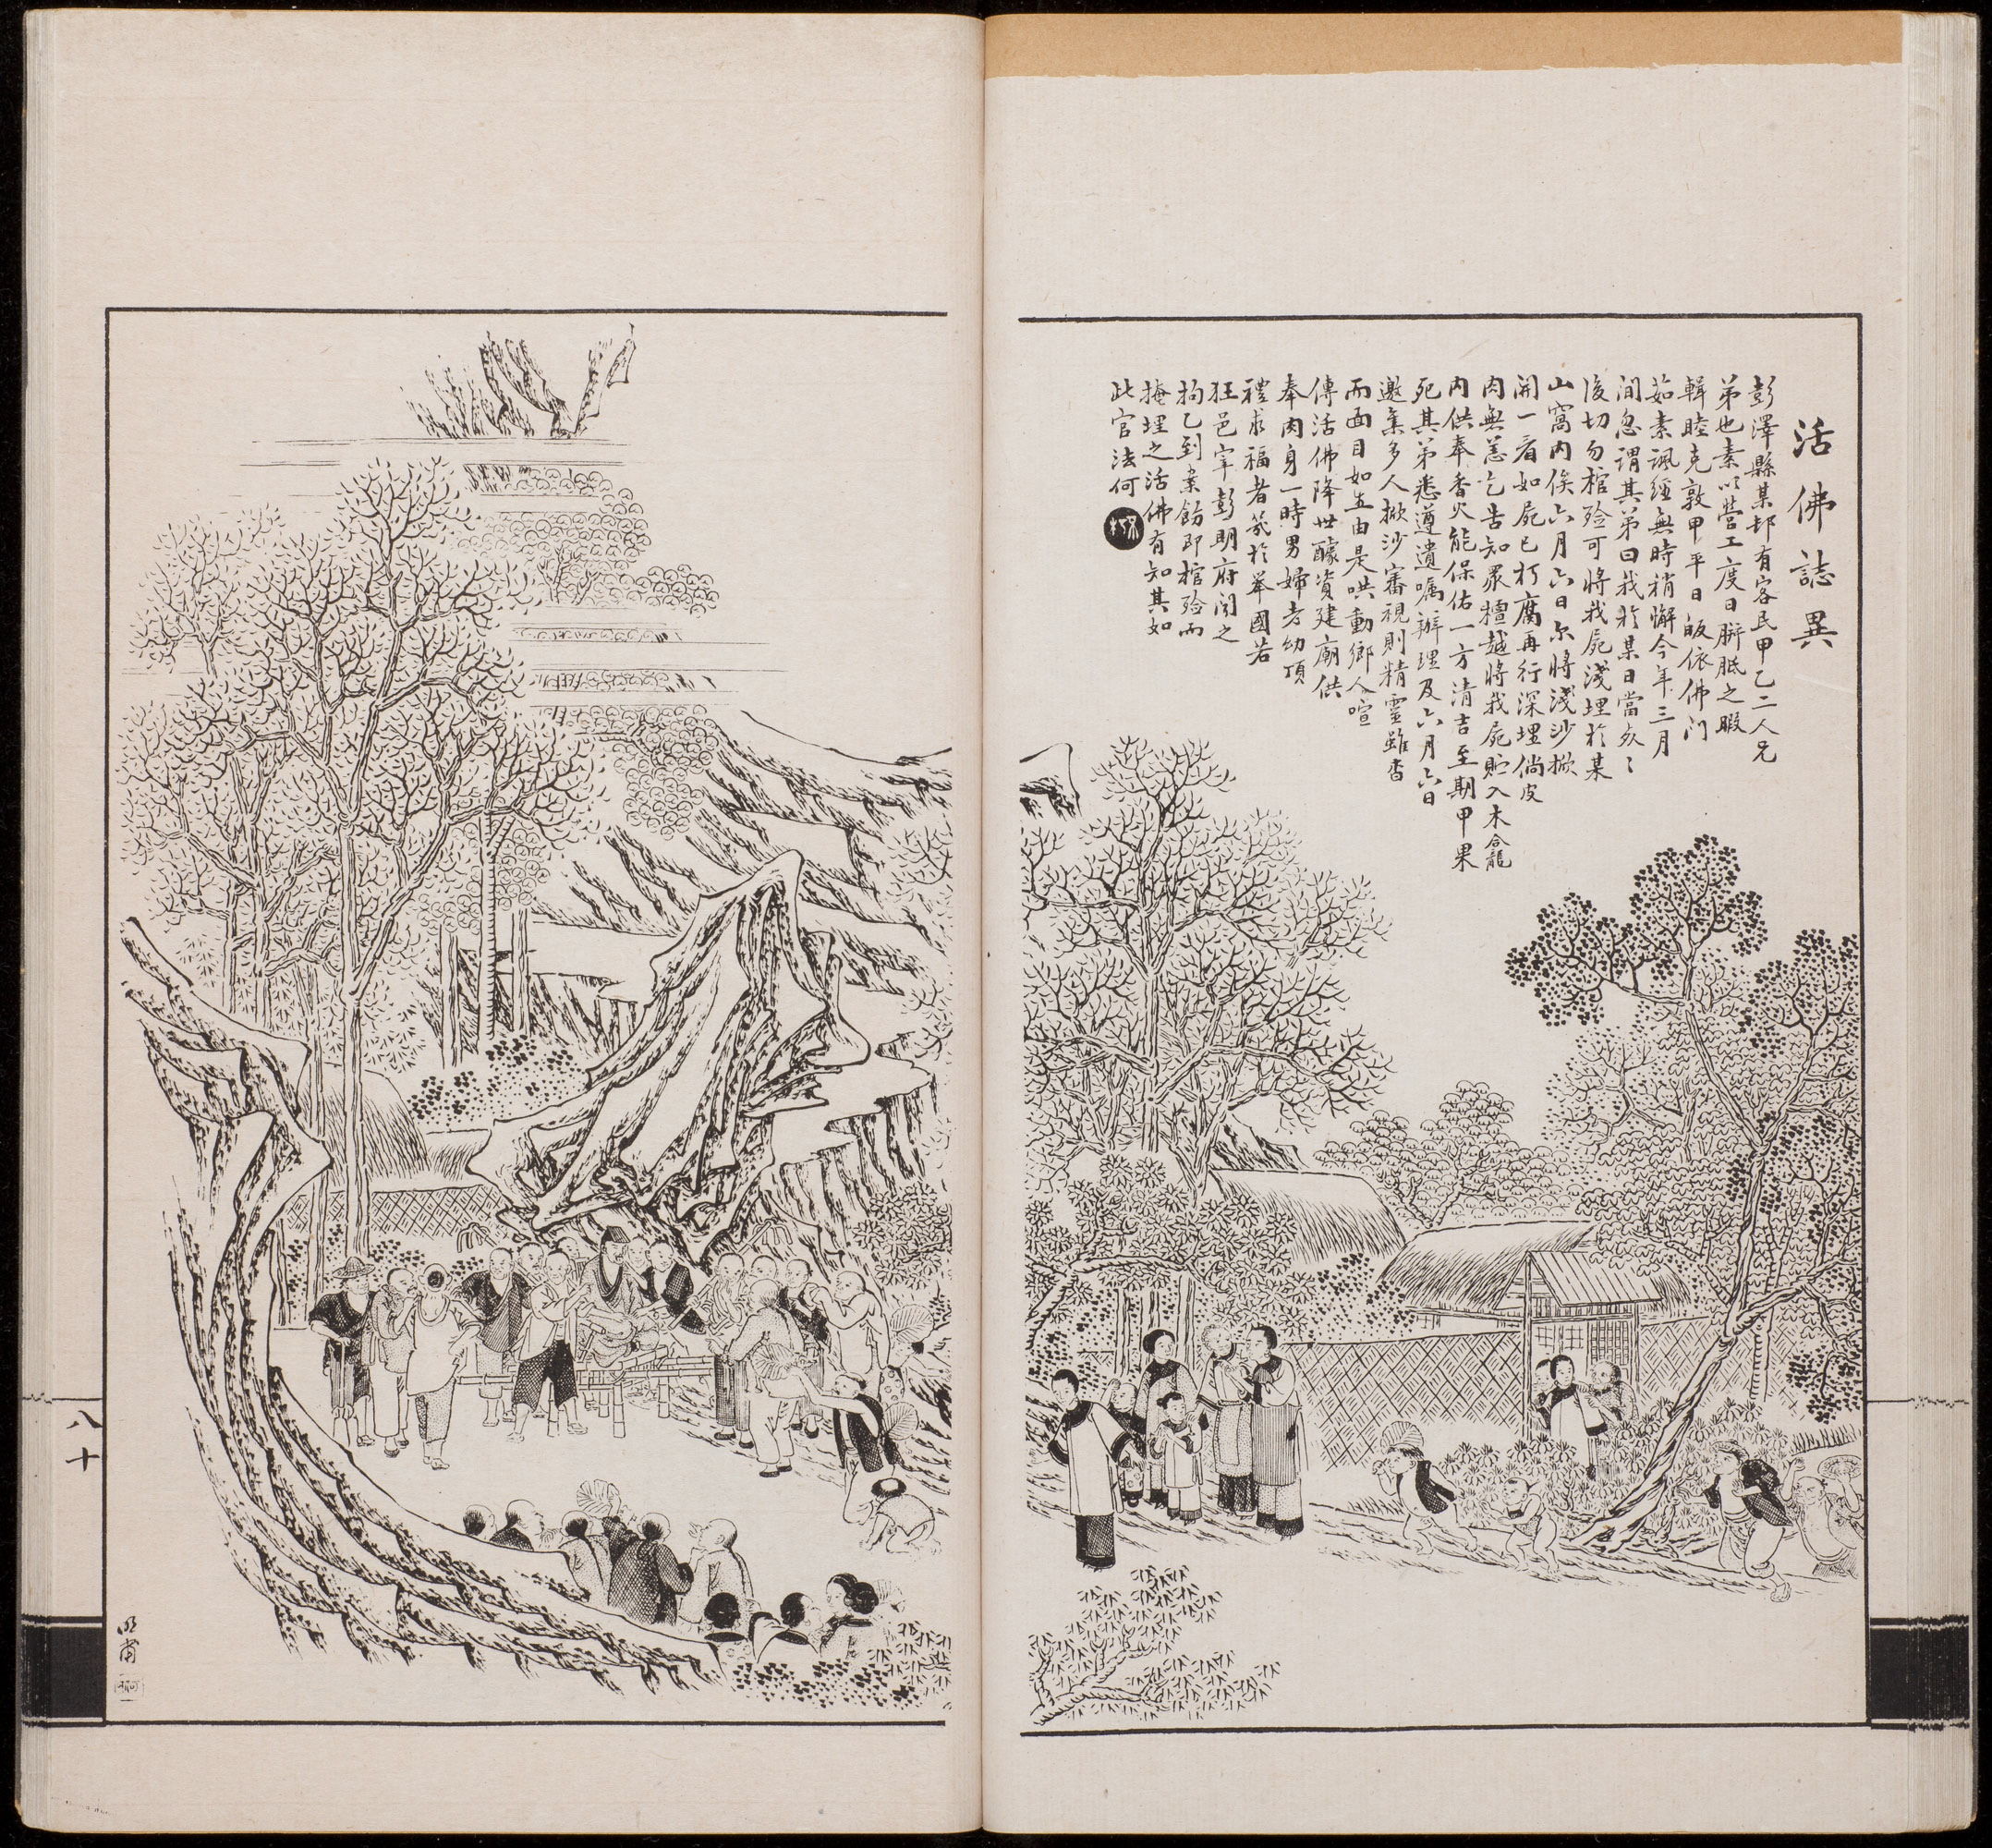 活佛誌異
彭澤縣某邨有客民甲乙二人兄
弟也素以營工度日胼胝之暇
輯睦克敦甲平日皈依佛门
茹素諷經無時稍懈今年三月
间忽謂其弟曰我於某日當死〻
後切勿棺殮可將我屍淺埋於某
山窩内俟六月六日尔將淺沙掀
開一看如屍已朽腐再行深埋倘皮
肉無恙乞告知眾檀越將我屍貯入木龕
内供奉香火能保佑一方清吉至期甲果
死其弟悉遵遺嘱辦理及六月六日
邀集多人掀沙審視則精靈雖杳
而面目如生由是哄動鄉人喧
傳活佛降世醵资建廟供
奉肉身一時男婦老幼頂
禮求福者幾於舉國若
狂邑宰彭明府闻之
拘乙到案飭即棺殮而
掩埋之活佛有知其如
此官法何
明甫
八十